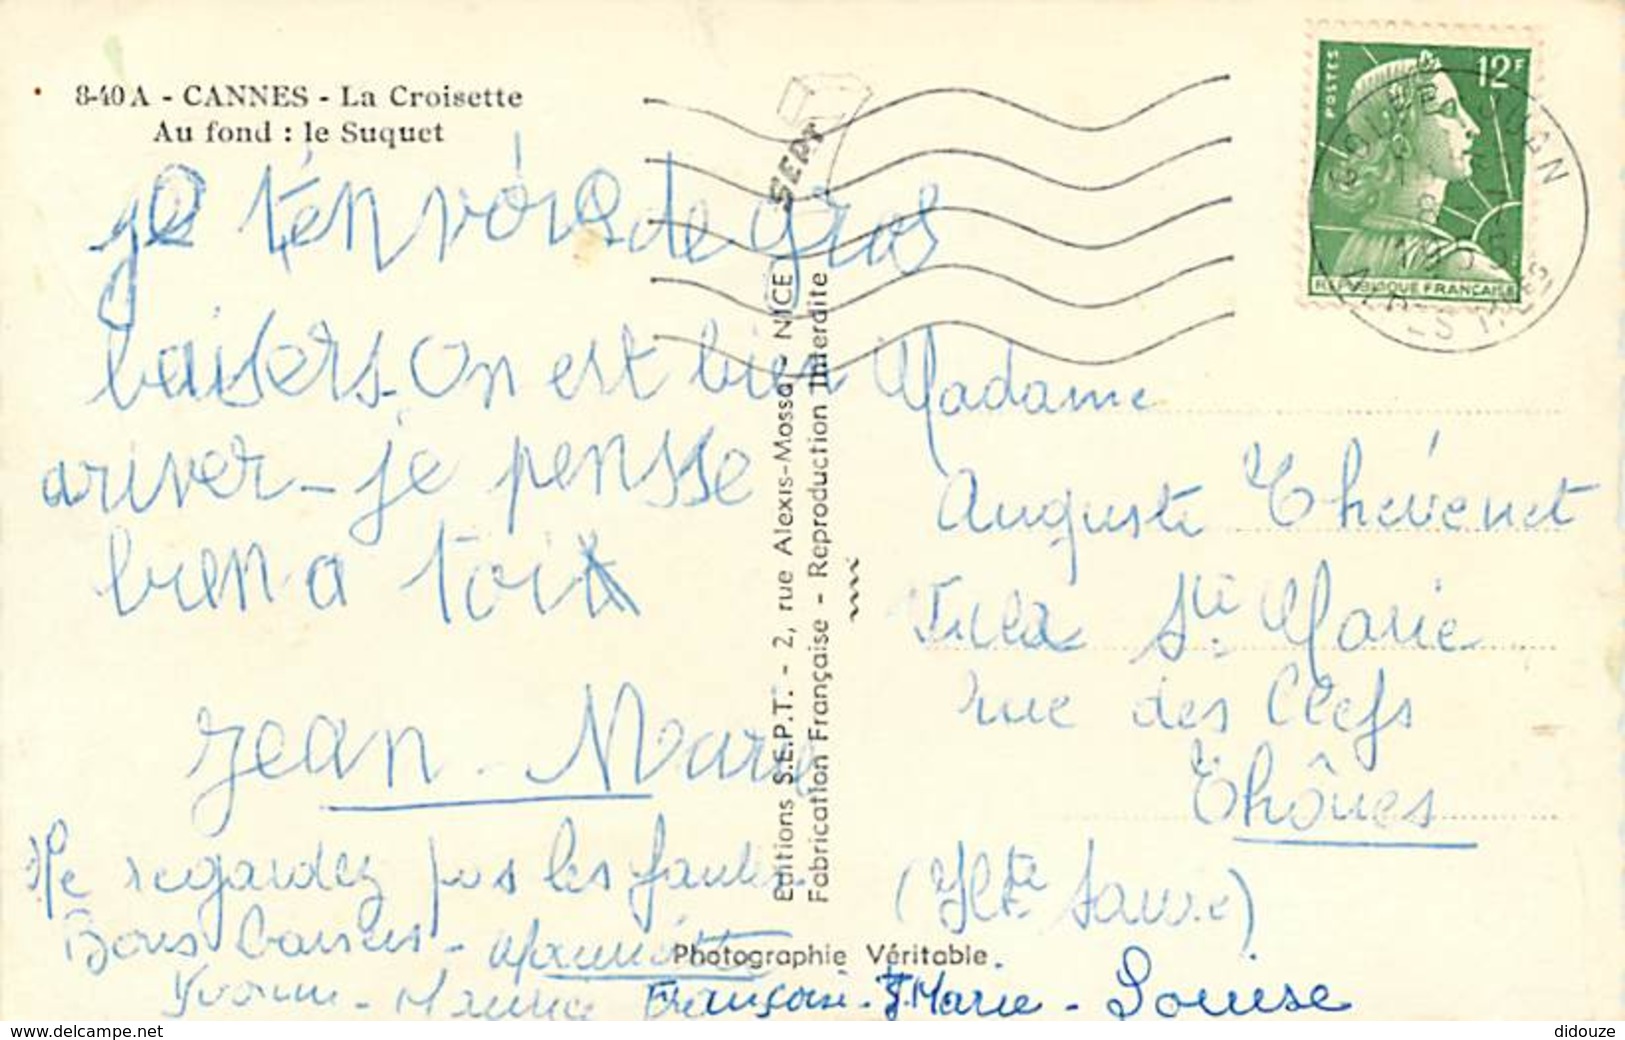 8-40 A - CANNES - La Croisette
Au fond : le Suquet
je t'envois de gros
baisers. On est bien
ariver - je pensse
bien a toi
Jean-Marc
Ne regardez pas les fautes
Bons baisers - Mauricette
Yvonne - Maurice Françoise - J. Marie - Louise
SEPT
Editions S.E.P.T. - 2, rue Alexis-Mossa - NICE
Fabrication Française - Reproduction Interdite
Photographie Véritable
POSTES
12F
REPUBLIQUE FRANÇAISE
GOLFE JUAN
Madame
Auguste Thévenet
Villa Ste Marie
rue des Clefs
Thônes
(Hte Savoie)
www.delcampe.net
didouze